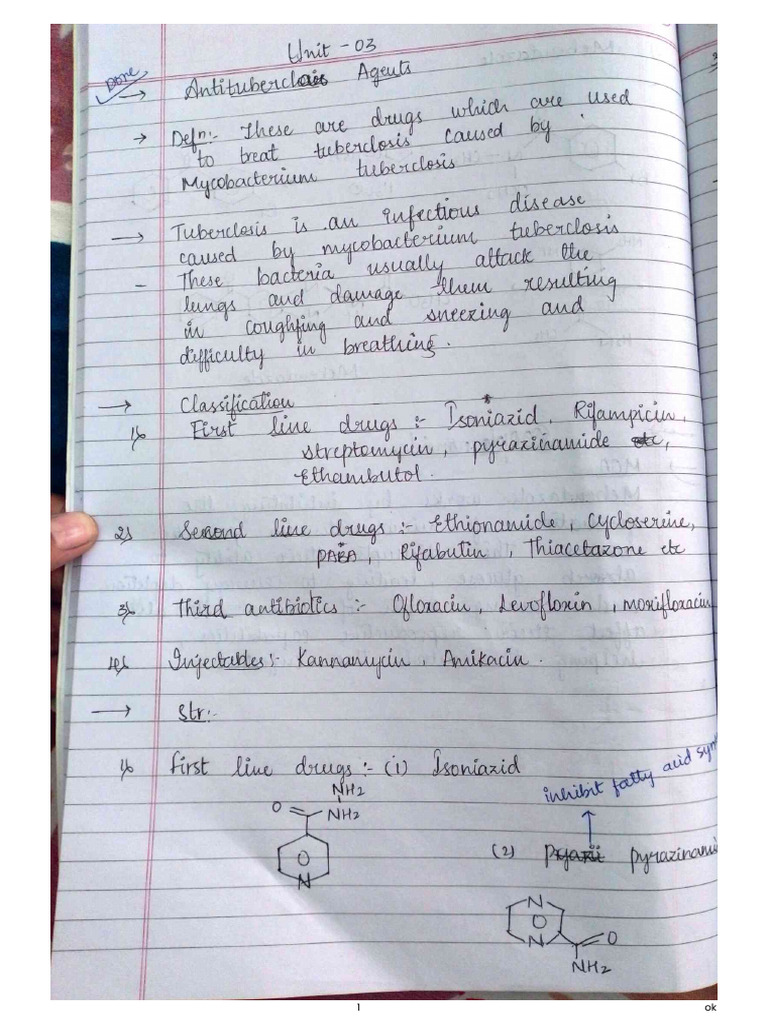 Unit - 03
Done
→ Antituberclosis Agents
→ Defn:- These are drugs which are used
to treat tuberclosis caused by
Mycobacterium tuberclosis
→ Tuberclosis is an infectious disease
caused by mycobacterium tuberclosis
- These bacteria usually attack the
lungs and damage them resulting
in coughfing and sneezing and
difficulty in breathing.
→ Classification
1) First line drugs :- Isoniazid, Rifampicin,
streptomycin, pyrazinamide etc,
Ethambutol.
2) Second line drugs :- Ethionamide, Cycloserine,
Rifabutin, Thiacetazone etc
3) Third antibiotics :- Ofloxacin, Levofloxin, moxifloxacin
4) Injectables :- Kannamycin, Amikacin.
→ Str:-
1) First line drugs :- (i) Isoniazid
NH2
O
NH2
O
N
inhibit fatty acid syn
(2) pyrazinami
N
O
N
O
NH2
1
ok